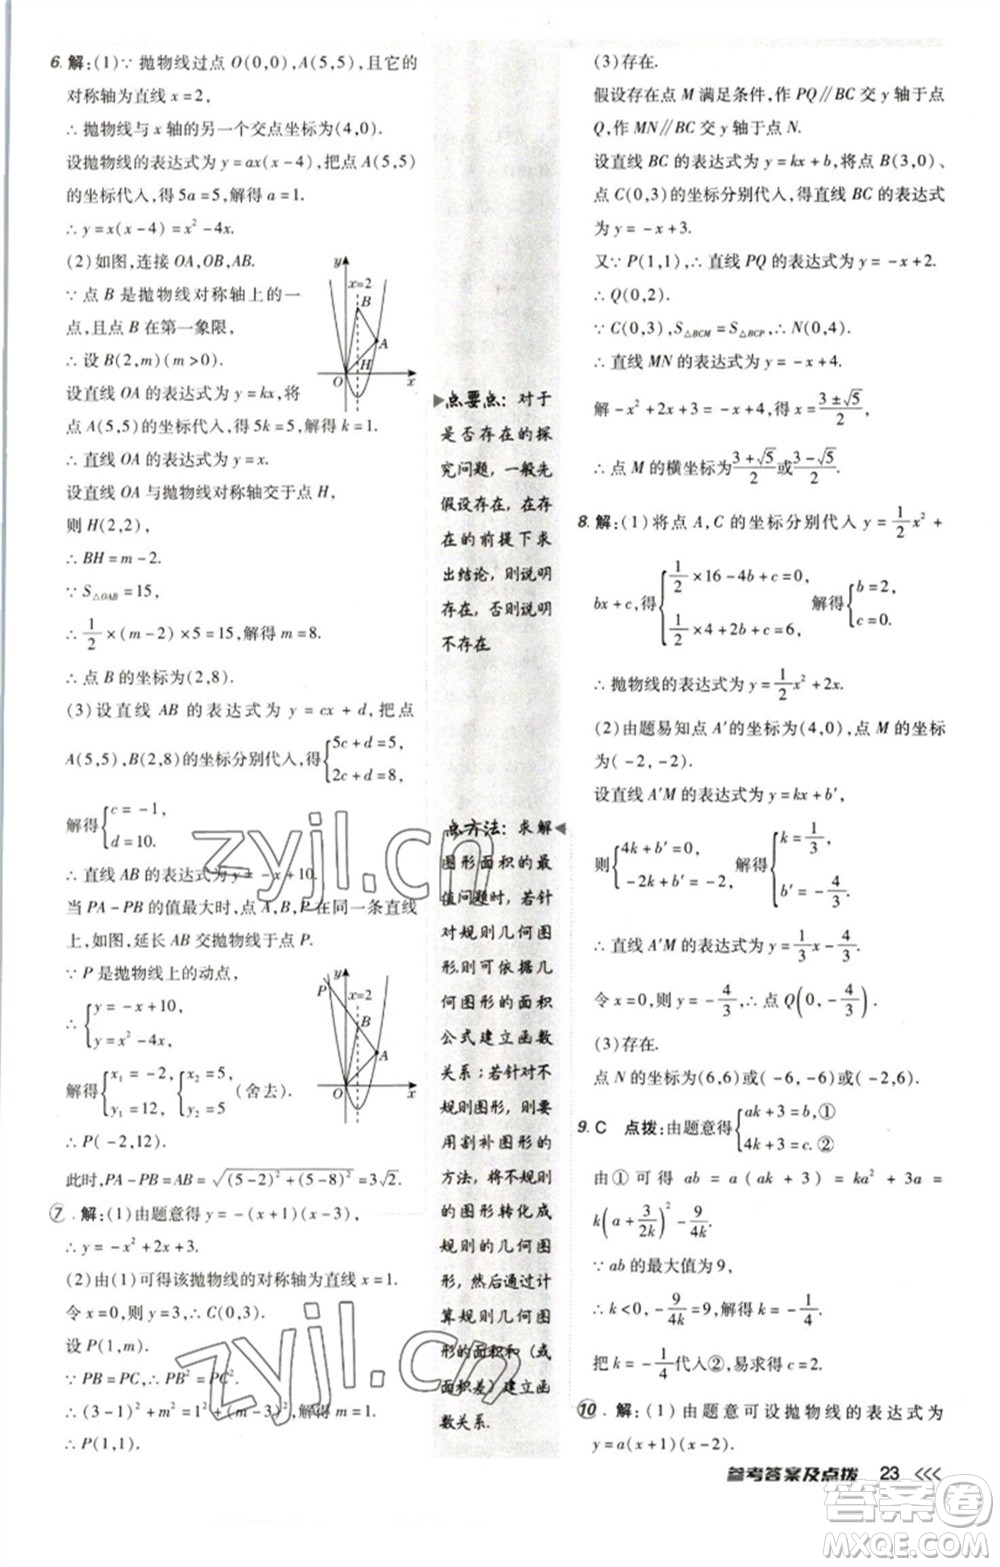 6. 解:(1)∵ 抛物线过点 O(0,0),A(5,5),且它的
对称轴为直线 x=2,
∴ 抛物线与 x 轴的另一个交点坐标为(4,0).
设抛物线的表达式为 y=ax(x-4),把点 A(5,5)
的坐标代入,得 5a=5,解得 a=1.
∴ y=x(x-4)=x²-4x.
(2)如图,连接 OA,OB,
∵ 点 B 是抛物线对称轴上的一
点,且点 B 在第一象限,
∴ 设 B(2,m)(m>0).
设直线 OA 的表达式为 y=kx,将
点 A(5,5)代入,得 5k=5,解得 k=1.
∴ 直线 OA 的表达式为 y=x.
设直线 OA 与抛物线对称轴交于点 H,
则 H(2,2),
∴ BH=m-2.
∵ S△OAB=15,
∴ 1/2×(m-2)×5=15,解得 m=8.
∴ 点 B 的坐标为(2,8).
(3)设直线 AB 的表达式为 y=cx+d,把点
A(5,5),B(2,8)的坐标分别代入,得{5c+d=5,
2c+d=8,
解得{c=-1,
d=10.
∴ 直线 AB 的表达式为 y=-x+10.
当 PA-PB 的值最大时,点 A,B,P 在同一条直线
上,如图,延长 AB 交抛物线于点 P.
∵ P 是抛物线上的动点,
∴ {y=-x+10,
y=x²-4x,
解得{x₁=-2,
y₁=12,
{x₂=5,
y₂=5
(舍去).
∴ P(-2,12).
此时,PA-PB=AB=√((5-2)²+(5-8)²)=3√2.
y
x=2
B
A
H
O
x
P
y
x=2
B
A
O
x
⑦. 解:(1)由题意得 y=-(x+1)(x-3),
∴ y=-x²+2x+3.
(2)由(1)可得该抛物线的对称轴为直线 x=1.
令 x=0,则 y=3,∴ C(0,3).
设 P(1,m).
∵ PB=PC,∴ PB²=PC².
∴ (3-1)²+m²=1²+(m-3)²,解得 m=1.
∴ P(1,1).
点要点: 对于
是否存在的探
究问题,一般先
假设存在,在存
在的前提下求
出结论,则说明
存在,否则说明
不存在.
点方法: 求解
图形面积的最
值问题时,若针
对规则几何图
形,则可依据几
何图形的面积
公式建立函数
关系;若针对不
规则图形,则要
用割补图形的
方法,将不规则
的图形转化成
规则的几何图
形,然后通过计
算规则几何图
形的面积和(或
面积差)建立函
数关系.
(3)存在.
假设存在点 M 满足条件,作 PQ∥BC 交 y 轴于点
Q,作 MN∥BC 交 y 轴于点 N.
设直线 BC 的表达式为 y=kx+b,将点 B(3,0)、
点 C(0,3)的坐标分别代入,得直线 BC 的表达式
为 y=-x+3.
又∵ P(1,1),∴ 直线 PQ 的表达式为 y=-x+2.
∴ Q(0,2).
∵ C(0,3),S△BCM=S△BCP,∴ N(0,4).
∴ 直线 MN 的表达式为 y=-x+4.
解 -x²+2x+3=-x+4,得 x=(3±√5)/2,
∴ 点 M 的横坐标为(3+√5)/2或(3-√5)/2.
8. 解:(1)将点 A,C 的坐标分别代入 y=1/2x²+
bx+c,得{1/2×16-4b+c=0,
1/2×4+2b+c=6,
解得{b=2,
c=0.
∴ 抛物线的表达式为 y=1/2x²+2x.
(2)由题易知点 A′的坐标为(4,0),点 M 的坐标
为(-2,-2).
设直线 A′M 的表达式为 y=kx+b′,
则{4k+b′=0,
-2k+b′=-2,
解得{k=1/3,
b′=-4/3,
∴ 直线 A′M 的表达式为 y=1/3x-4/3.
令 x=0,则 y=-4/3,∴ 点 Q(0,-4/3).
(3)存在.
点 N 的坐标为(6,6)或(-6,-6)或(-2,6).
9. C 点拨:由题意得{ak+3=b,①
4k+3=c.②
由①可得 ab=a(ak+3)=ka²+3a=
k(a+3/2k)²-9/4k,
∵ ab 的最大值为 9,
∴ k<0,-9/4k=9,解得 k=-1/4.
把 k=-1/4代入②,易求得 c=2.
⑩. 解:(1)由题意可设抛物线的表达式为
y=a(x+1)(x-2).
参考答案及点拨 23
zyjl.cn
zyjl.cn
答案圈
MXQE.COM